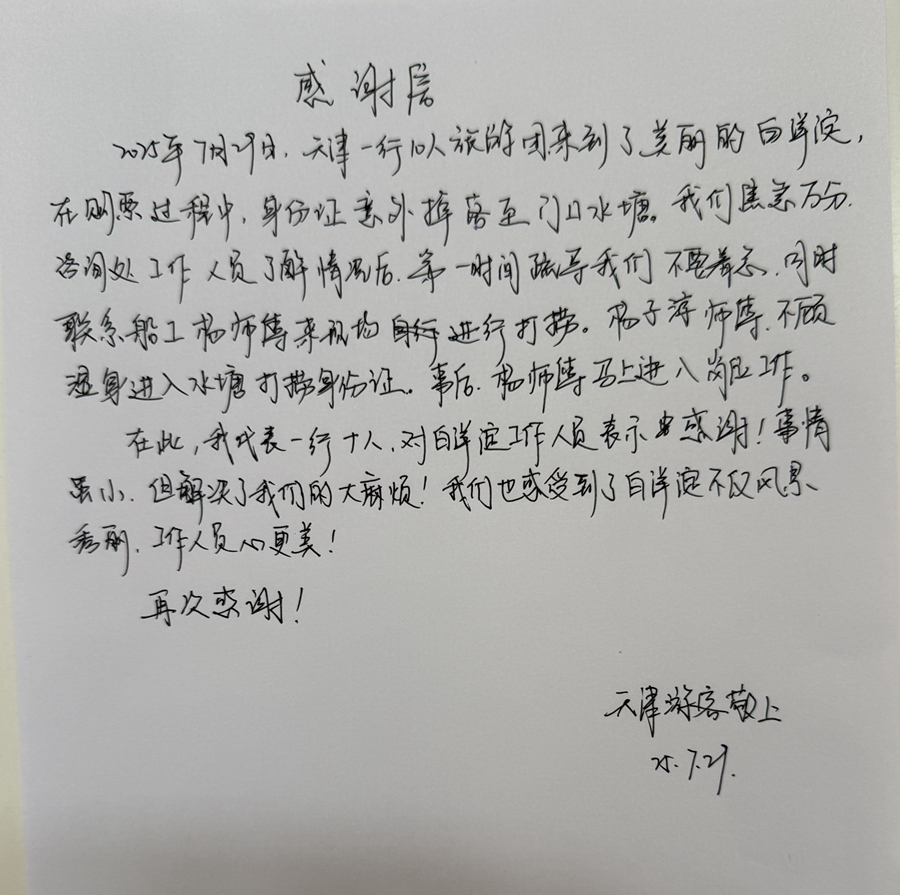 感谢信
2025年7月29日，天津一行10人旅游团来到了美丽的白洋淀，
在购票过程中，身份证意外掉落至门口水塘。我们焦急万分，
咨询处工作人员了解情况后，第一时间疏导我们不要着急，同时
联系船工杨师傅来现场自行进行打捞。杨子淳师傅，不顾
湿身进入水塘打捞身份证。事后，杨师傅马上进入岗位工作。
在此，我代表一行十人，对白洋淀工作人员表示感谢！事情
虽小，但解决了我们的大麻烦！我们也感受到了白洋淀不仅风景
秀丽，工作人员心更美！
再次感谢！
天津游客敬上
25.7.29.